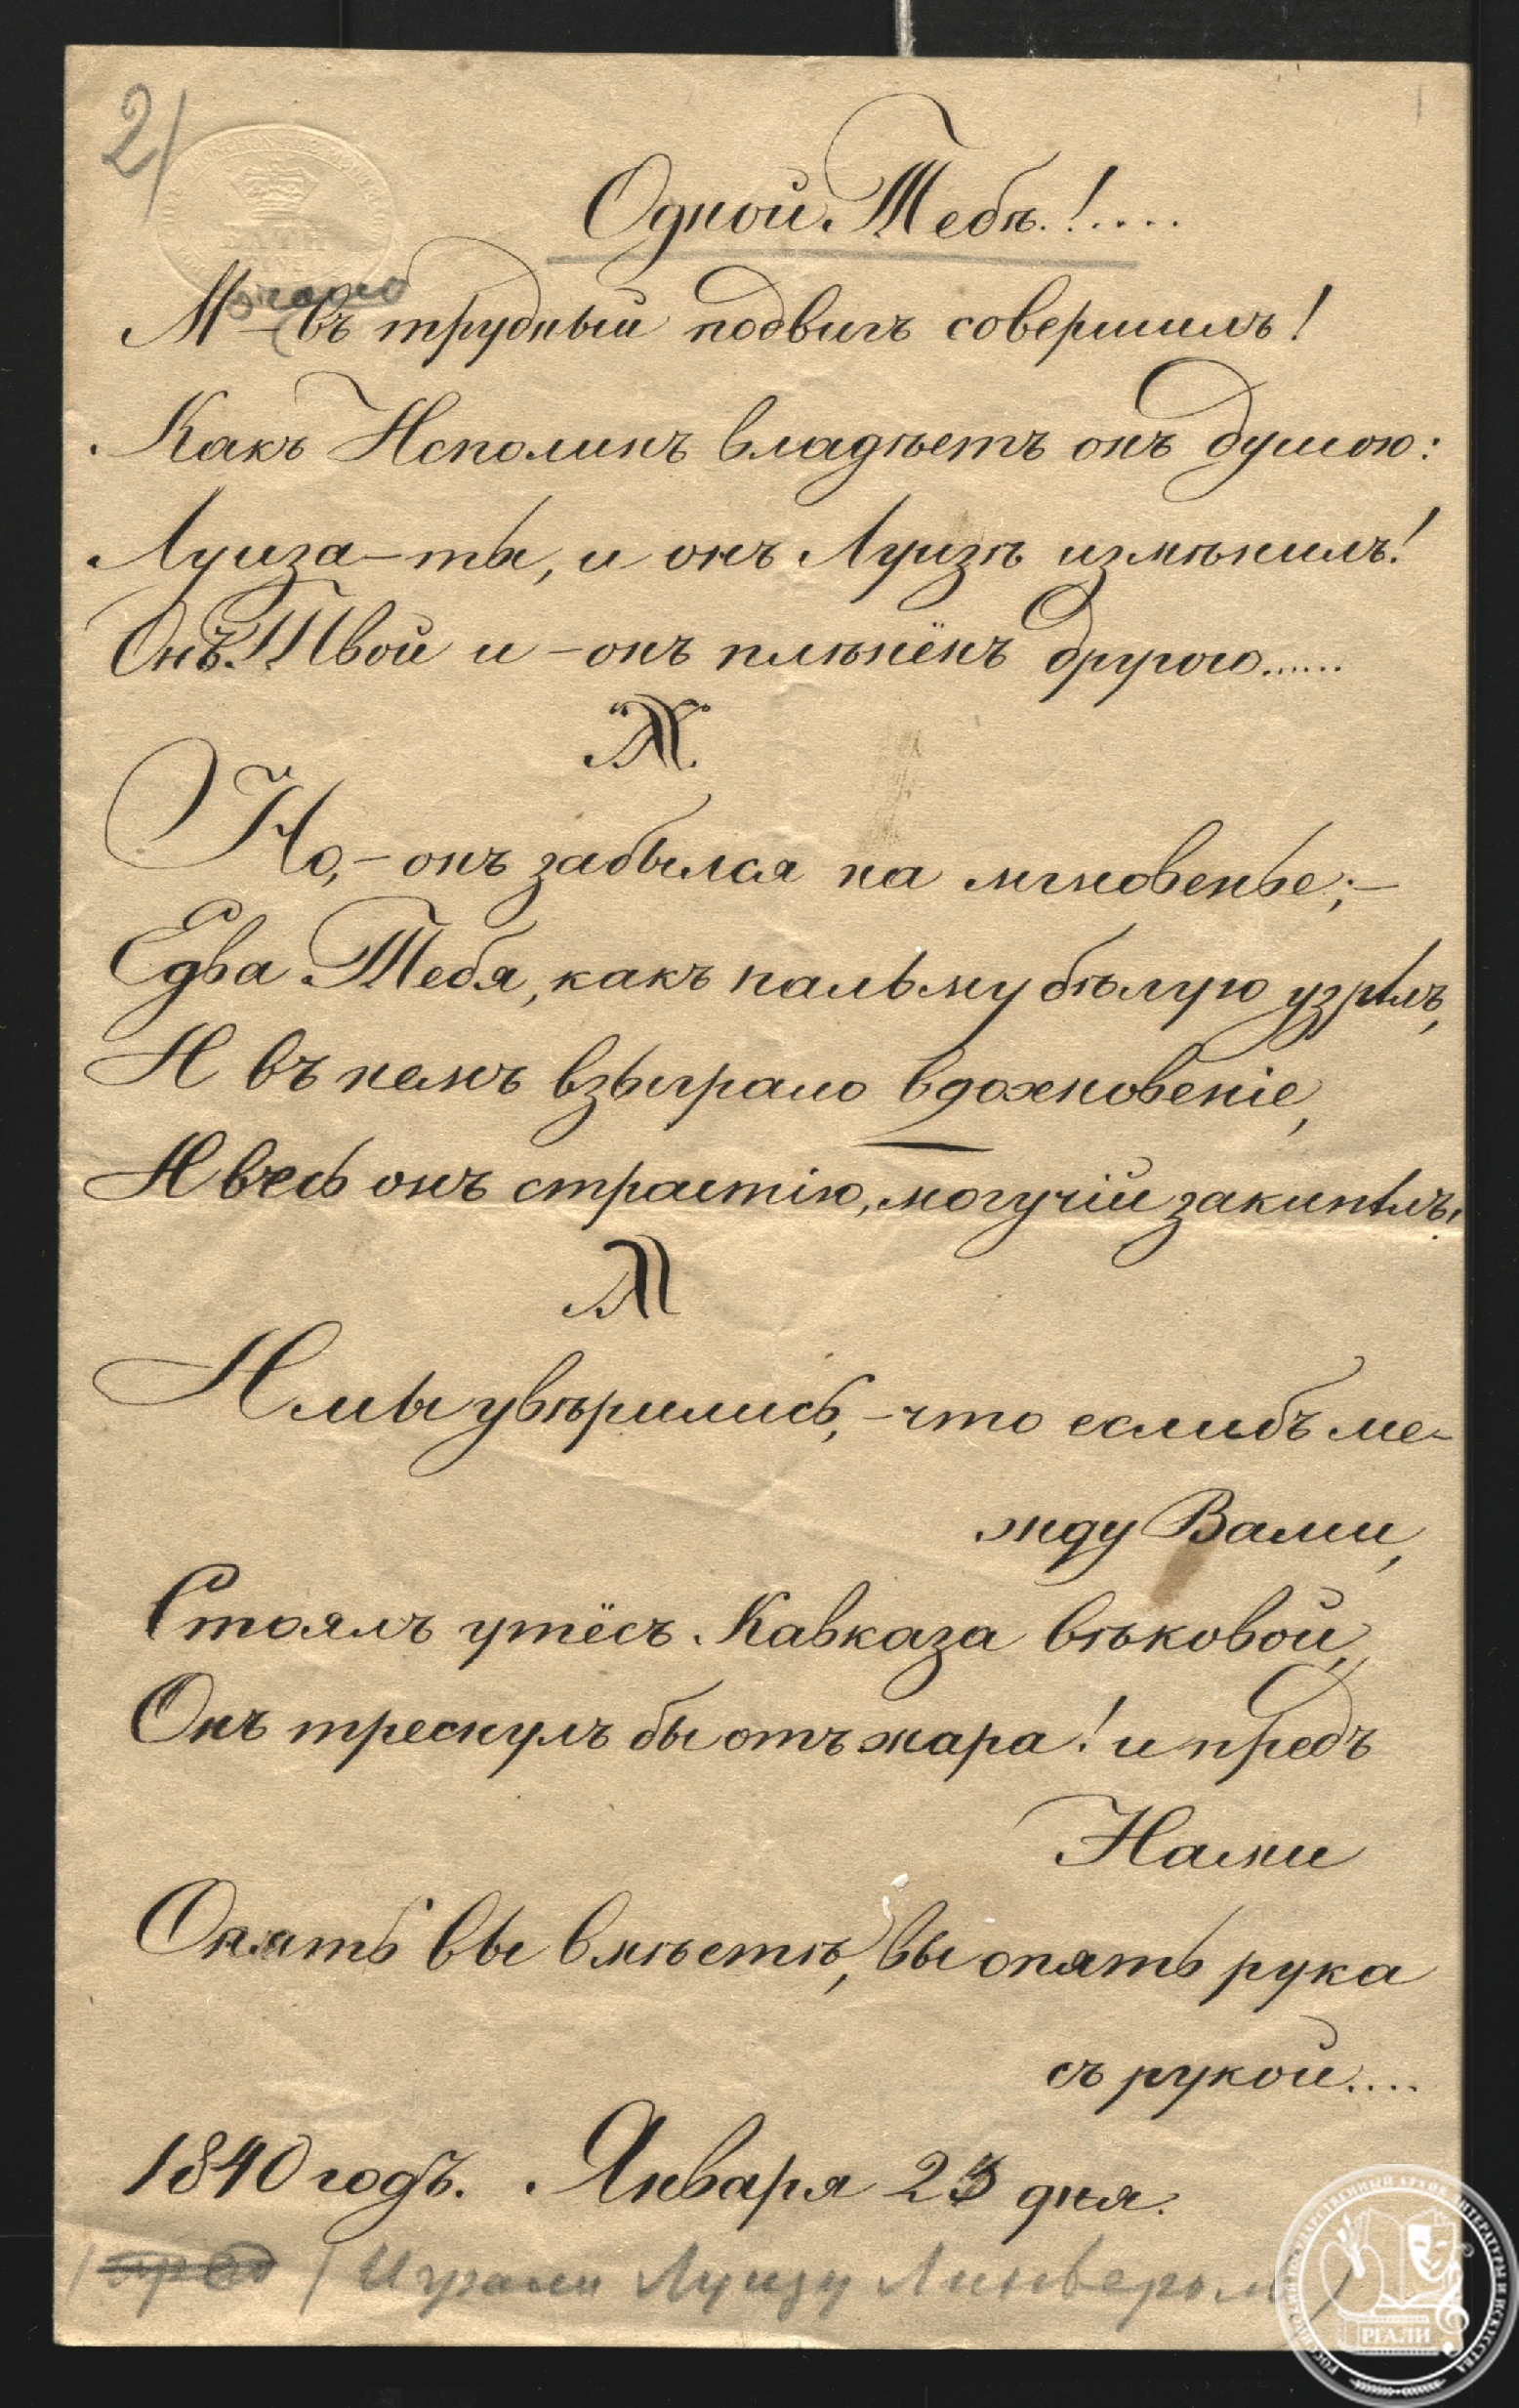 2/
Одной Тебѣ!....
М—въ трудный подвигъ совершилъ!
Какъ Исполинъ владѣетъ онъ душою:
Луиза—ты, и онъ Луизѣ измѣнилъ!
Онъ Твой и – онъ плѣнёнъ другою......
Но, – онъ забылся на мгновенье; –
Едва Тебя, какъ пальму бѣлую узрѣлъ,
И въ немъ взыграло вдохновеніе,
И весь онъ страстію, могучій закипѣлъ!
И мы увѣрились, – что еслибъ ме-
жду Вами,
Стоялъ утёсъ Кавказа вѣковой,
Онъ треснулъ бы отъ жара! и предъ
Нами
Опять вы вмѣстѣ, вы опять рука
съ рукой....
1840 годъ. Января 23 дня.
(Играли Луизу
РГАЛИ